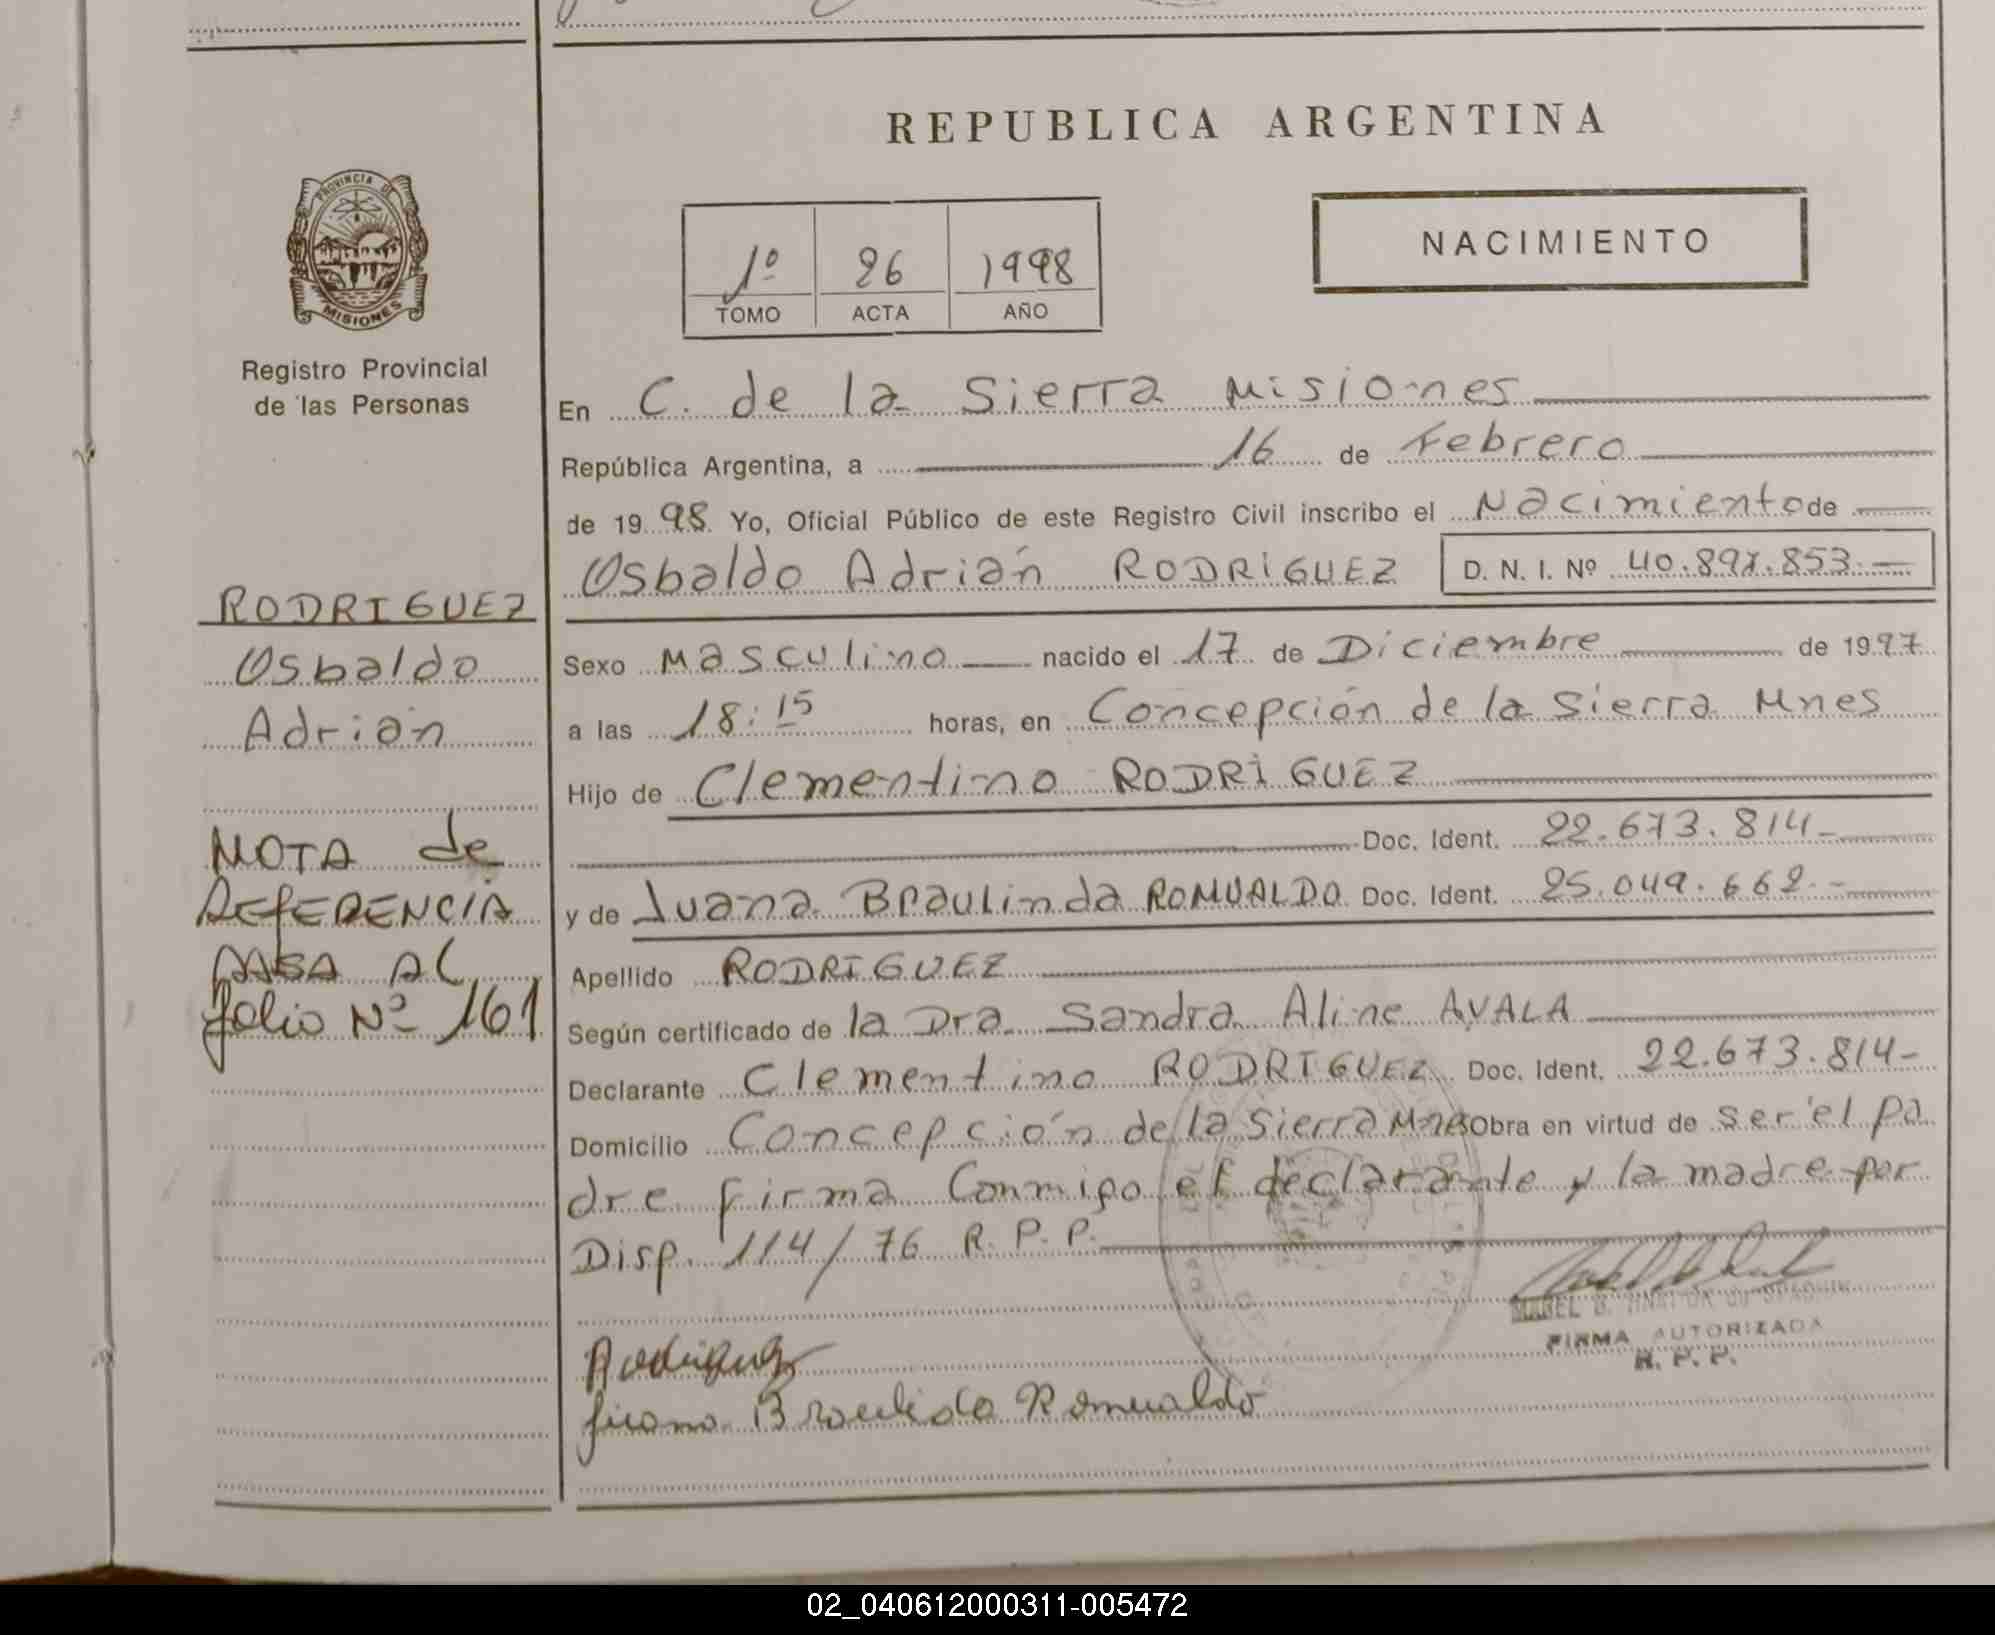 REPUBLICA ARGENTINA
PROVINCIA DE
MISIONES
Registro Provincial
de las Personas
1º 26 1998
TOMO ACTA AÑO
NACIMIENTO
En C. de la Sierra Misiones
República Argentina, a 16 de Febrero
de 19 98 Yo, Oficial Público de este Registro Civil inscribo el Nacimiento de
Osbaldo Adrián RODRIGUEZ D. N. I. Nº
Sexo Masculino nacido el 17 de Diciembre de 1997
a las 18:15 horas, en Concepción de la Sierra Mnes
Hijo de Clementino RODRIGUEZ
Doc. Ident. 22.673.814-
y de Juana Braulinda ROMUALDO Doc. Ident. 25.049.662.-
Apellido RODRIGUEZ
Según certificado de la Dra Sandra Aline AYALA
Declarante Clementino RODRIGUEZ Doc. Ident. 22.673.814-
Domicilio Concepción de la Sierra Mnes Obra en virtud de ser el pa
dre firma Conmigo el declarante y la madre por
Disp. 114/76 R. P. P.
Rodriguez
Juana Braulida Romualdo
FIRMA AUTORIZADA
R. P. P.
RODRIGUEZ
Osbaldo
Adrián
NOTA de
REFERENCIA
PASA AL
folio Nº 161
02_040612000311-005472